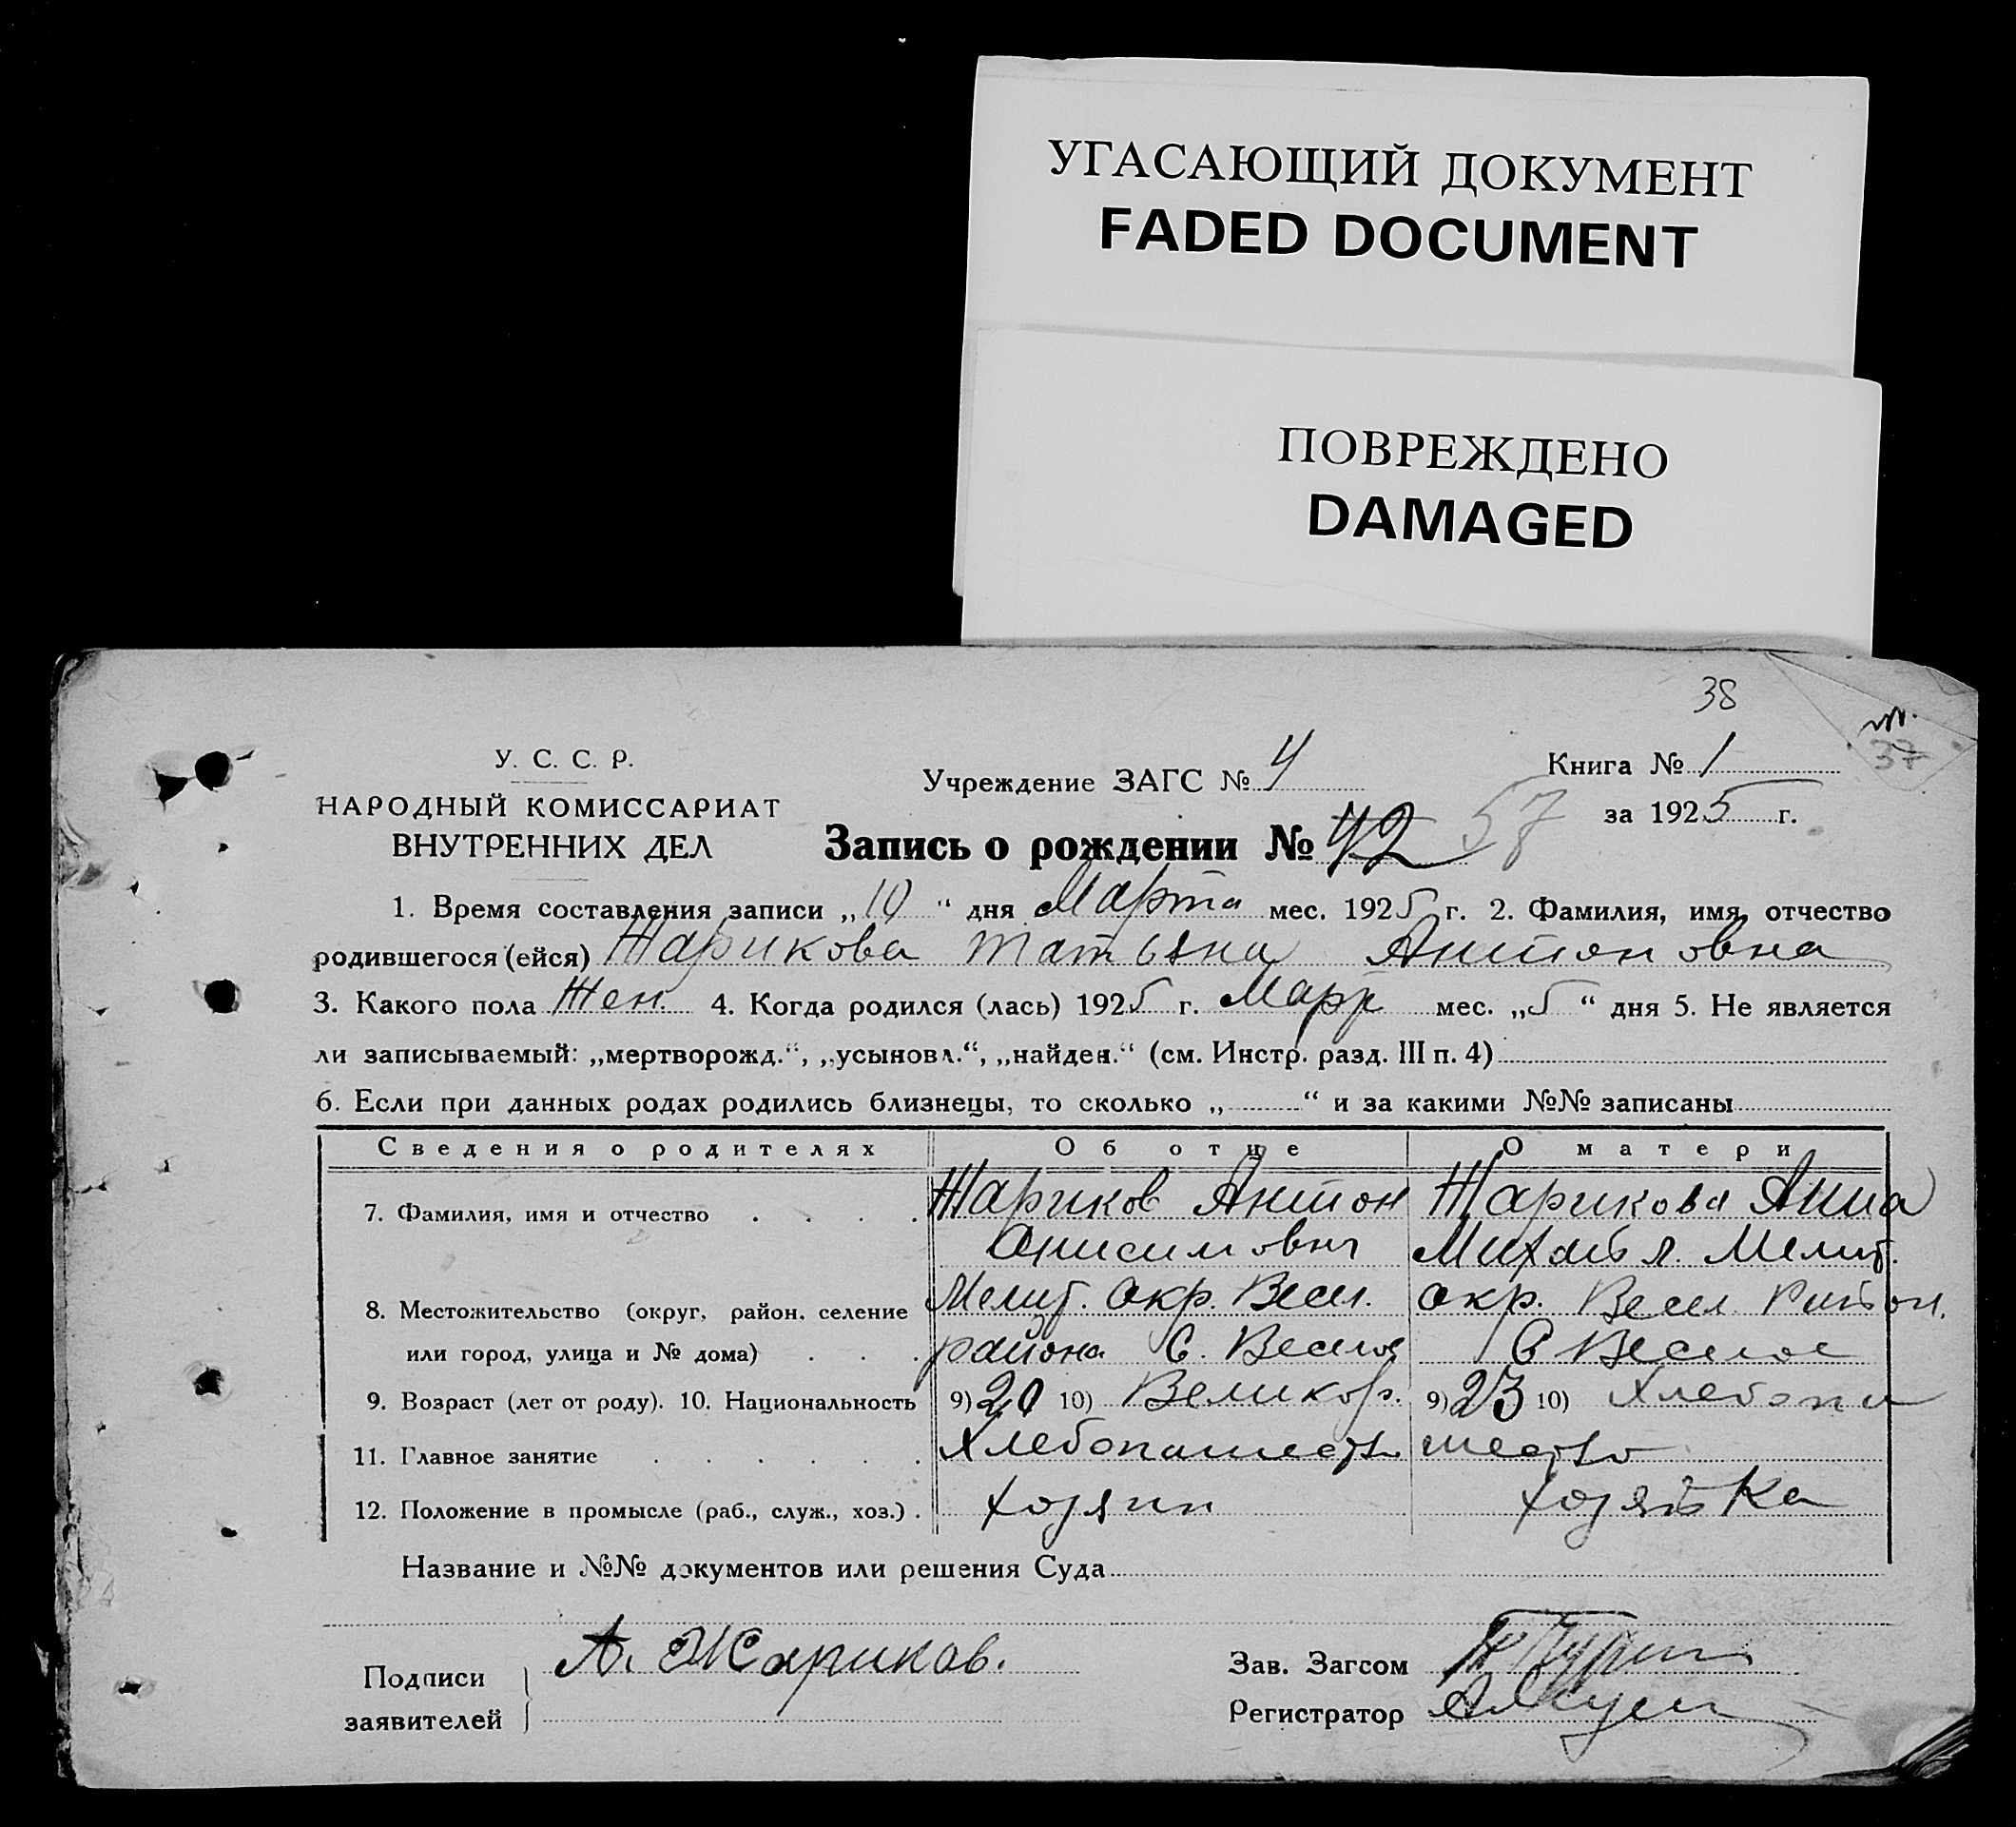 УГАСАЮЩИЙ ДОКУМЕНТ
FADED DOCUMENT
ПОВРЕЖДЕНО
DAMAGED
38
37
У. С. С. Р.
НАРОДНЫЙ КОМИССАРИАТ
ВНУТРЕННИХ ДЕЛ
Учреждение ЗАГС № 4
Книга № 1
за 1925 г.
Запись о рождении № 42 57
1. Время составления записи „10“ дня Марта мес. 1925 г. 2. Фамилия, имя, отчество
родившегося (ейся) Жарикова Татьяна Антоновна
3. Какого пола Жен. 4. Когда родился (лась) 1925 г. Мар мес. „5“ дня 5. Не является
ли записываемый: „мертворожд.“, „усыновл.“, „найден.“ (см. Инстр. разд. III п. 4)
6. Если при данных родах родились близнецы, то сколько „ “ и за какими №№ записаны
Сведения о родителях Об отце О матери
7. Фамилия, имя и отчество Жариков Антон Жарикова Анна
Анисимович Михайл. Мелит.
8. Местожительство (округ, район, селение Мелит. Окр. Весел. Окр. Весел. Район.
или город, улица и № дома) района С. Веселое С Веселое
9. Возраст (лет от роду). 10. Национальность 9) 20 10) Великор. 9) 23 10) Хлебопа
11. Главное занятие Хлебопашество шество
12. Положение в промысле (раб., служ., хоз.) Хозяин Хозяйка
Название и №№ документов или решения Суда
Подписи А. Жариков. Зав. Загсом
заявителей Регистратор